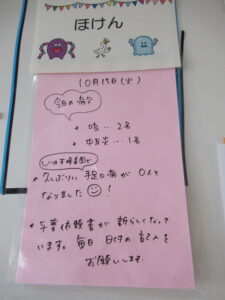 ほけん
10月15日(火)
今日の病欠
・咳…2名
・中耳炎…1名
しいの木保育園で
・久しぶりに手足口病が0人と
なりました!
・与薬依頼書が新しくなって
います。毎日 日付の記入を
お願いします。